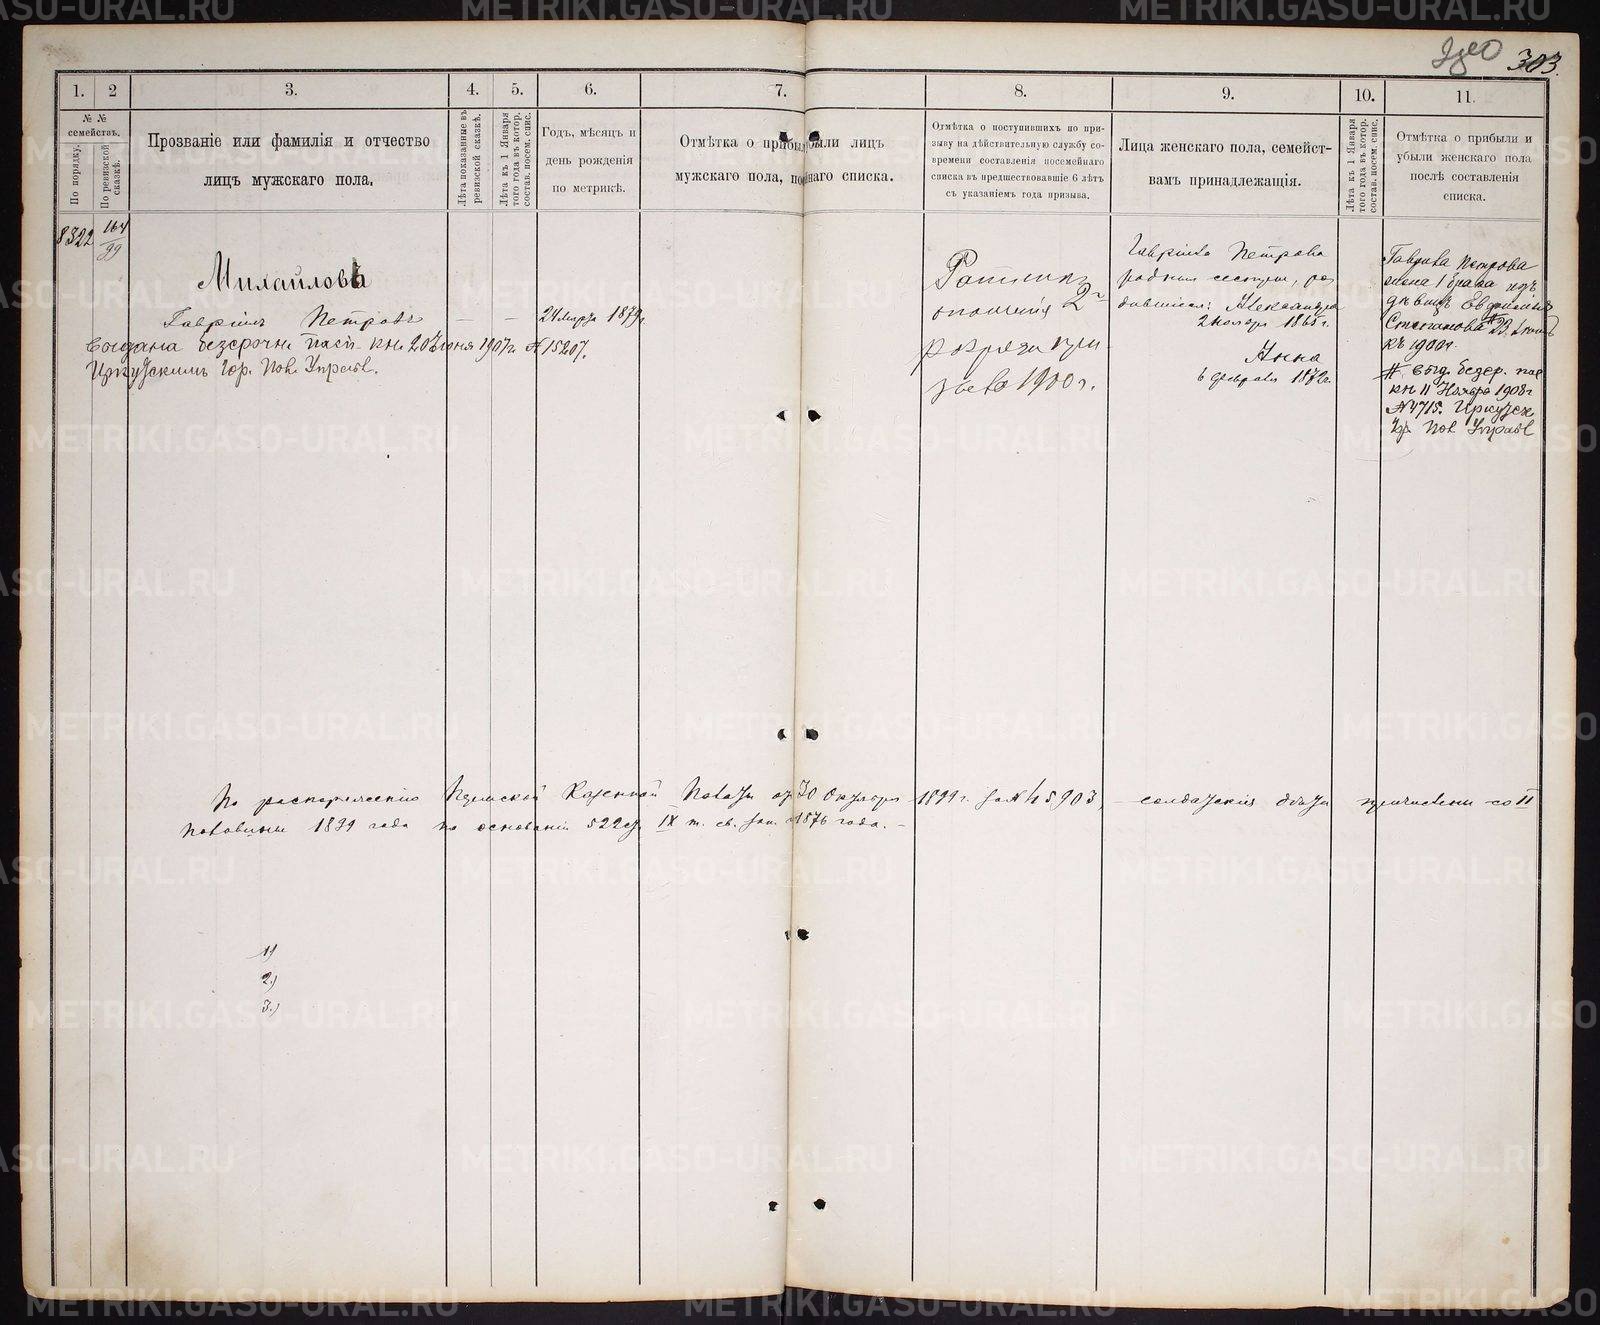 303.
1.
2
3.
4.
5.
6.
7.
8.
9.
10.
11.
№ №
семействъ.
По порядку.
По ревизской
сказкѣ.
Прозваніе или фамилія и отчество
лицъ мужскаго пола.
Лѣта показанные въ
ревизской сказкѣ.
Лѣта къ 1 Января
того года въ котор.
состав. посем. спис.
Годъ, мѣсяцъ и
день рожденія
по метрикѣ.
Отмѣтка о прибыли лицъ
мужскаго пола, наго списка.
Отмѣтка о поступившихъ по при-
зыву на дѣйствительную службу со-
времени составленія посемейнаго
списка въ предшествовавшіе 6 лѣтъ
съ указаніемъ года призыва.
Лица женскаго пола, семейст-
вамъ принадлежащія.
Лѣта къ 1 Января
того года въ котор.
состав. посем. спис.
Отмѣтка о прибыли и
убыли женскаго пола
послѣ составленія
списка.
8322
164
99
Михайловъ
Гавріилъ Петровъ — — 24 Марта 1879г.
Выдана безсрочн. пасп. кн. 20 Іюня 1907г. № 15207.
Иркутскимъ Гор. Пол. Управл.
Ратникъ
ополченія 2го
разряда при-
зыва 1900г.
Гавріила Петрова
родныя сестры, ро
дившіяся: Александра
2 ноября 1865г.
Анна
6 Февраля 1872г.
Гаврила Петрова
жена 1 брака изъ
дѣвицъ Евдокія
Степанова # 23
къ 1900г.
# Выд. безср. пас
кн 11 Ноября 1908г
№ 4715. Иркутск
Гор Пол Управл
По распоряженію Пермской Казенной Палаты отъ 30 Октября 1899г. за № 45903, солдатскія дѣти причислены со II
половины 1899 года на основаніи 522 ст. IX т. св. зак. 1876 года. —
1)
2.)
3.)
METRIKI.GASO-URAL.RU